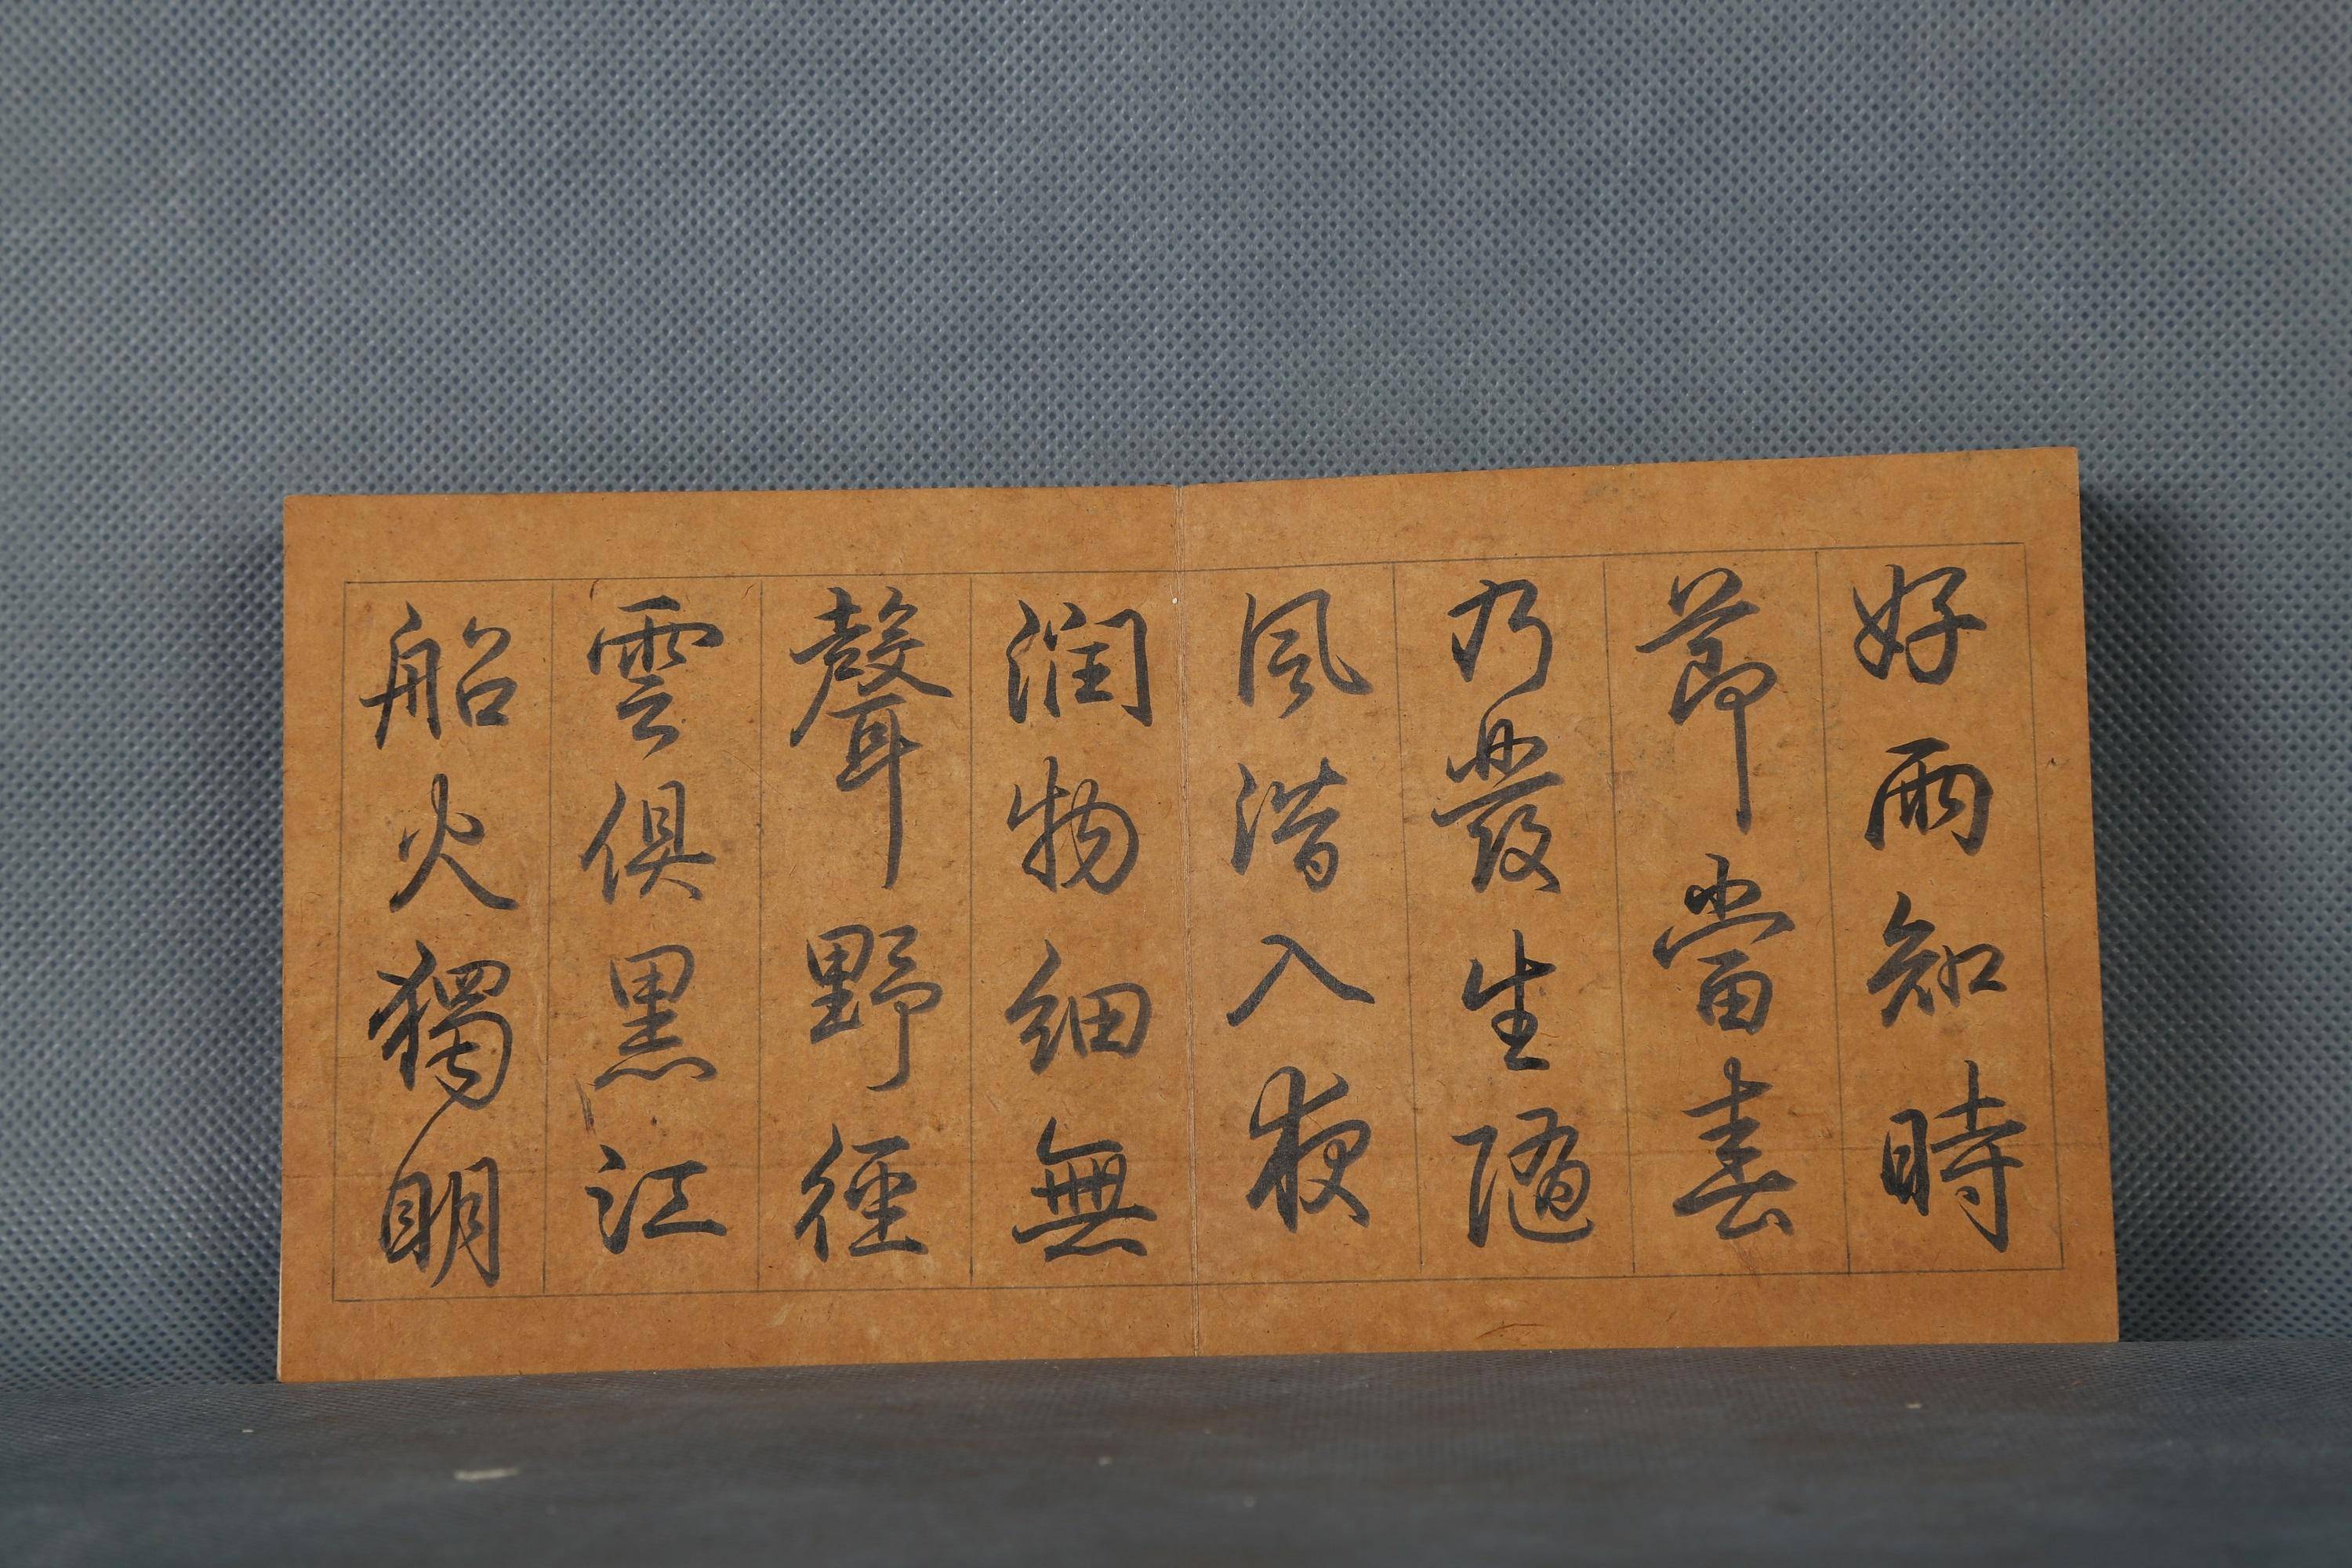 好雨知時
節當春
乃發生隨
風潛入夜
润物細無
聲野徑
雲俱黑江
船火獨明